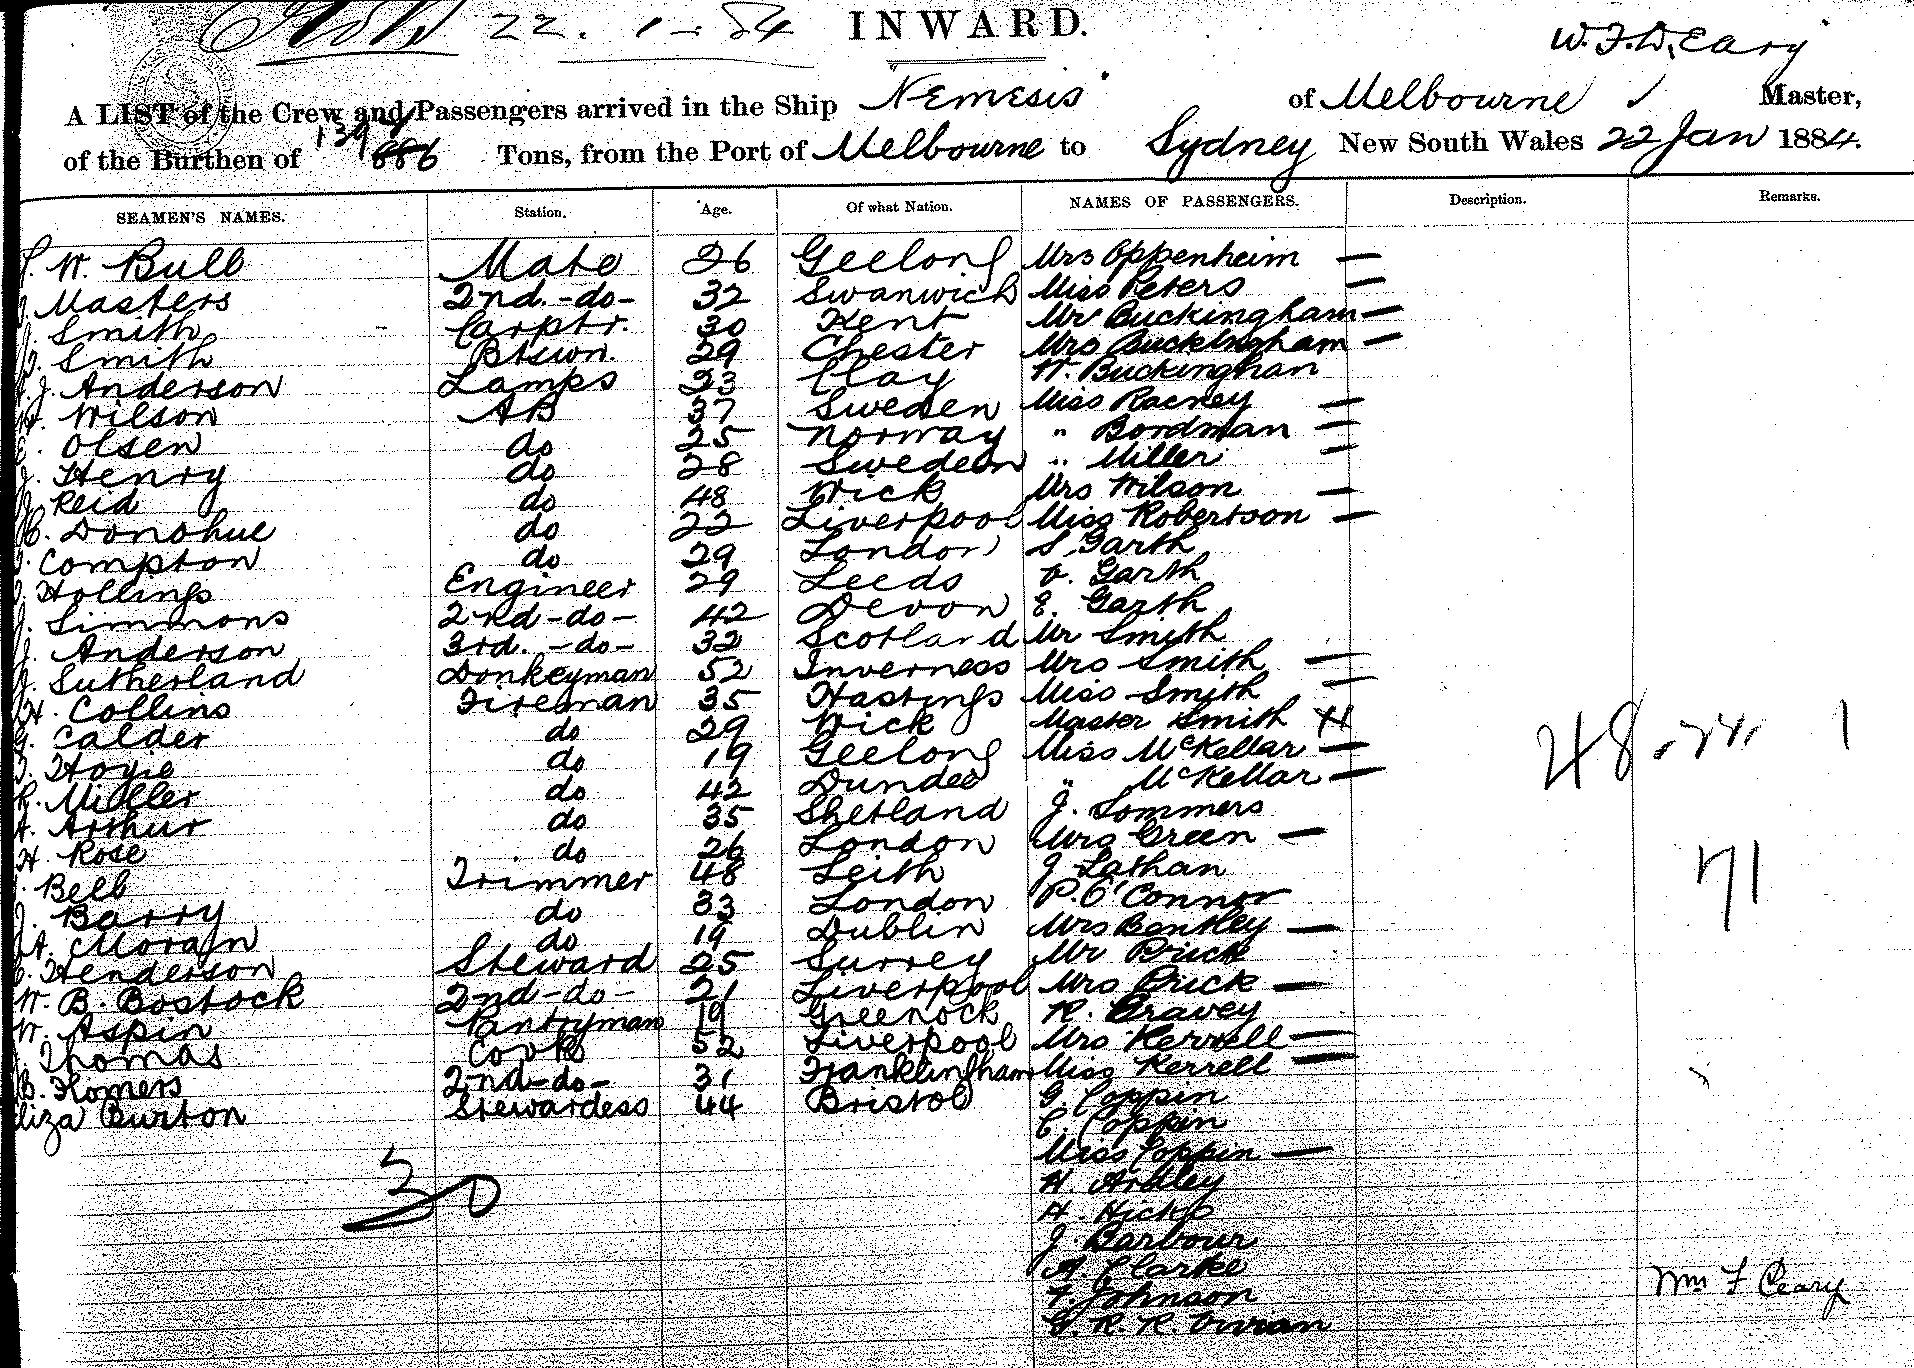 22. 1 - 84 INWARD.
W. F. D. Eary
A LIST of the Crew and Passengers arrived in the Ship "Nemesis" of Melbourne Master,
of the Burthen of 886 Tons, from the Port of Melbourne to Sydney New South Wales 22 Jan 1884.
SEAMEN'S NAMES. Station. Age. Of what Nation. NAMES OF PASSENGERS. Description. Remarks.
W. Bull Mate 26 Geelong Mrs Oppenheim —
Masters 2nd. -do- 32 Swanwich Miss Peters —
J. Smith Carptr. 30 Kent Mr Buckingham —
Smith Btswn. 29 Chester Mrs Buckingham —
J. Anderson Lamps 23 Clay W. Buckingham
Wilson AB 37 Sweden Miss Racney —
Olsen do 25 Norway " Bordman —
J. Henry do 28 Swedeen " Miller —
Reid do 48 Wick Mrs Wilson —
Donohue do 22 Liverpool Miss Robertson —
Compton do 29 London S. Garth
Hollings Engineer 29 Leeds V. Garth
J. Simmons 2nd -do- 42 Devon E. Garth
J. Anderson 3rd. -do- 32 Scotland Mr Smith
J. Sutherland Donkeyman 52 Inverness Mrs Smith —
H. Collins Fireman 35 Hastings Miss Smith —
G. Calder do 29 Wick Master Smith
Hogie do 19 Geelong Miss McKellar —
R. Miller do 42 Dundee " McKellar —
A. Arthur do 35 Shetland J. Sommers
H. Rose do 26 London Mrs Green —
Bell Trimmer 48 Leith J. Lathan
J. Barry do 33 London P. O'Connor
A. Moran do 19 Dublin Mrs Bentley —
Henderson Steward 25 Surrey Mr Brick
W. B. Bostock 2nd -do- 21 Liverpool Mrs Brick —
W. Aspin Pantryman 19 Greenock R. Cravey
Thomas Cook 52 Liverpool Mrs Kerrell —
B. Homers 2nd -do- 31 Franklingham Miss Kerrell —
Eliza Burton Stewardess 44 Bristol G. Coppin
C. Coppin
Miss Coppin —
H. Ardley
H. Hicks
J. Barbour
A. Clarke
F. Johnson
G. R. R. Curran
48 . 24. 1
71
30
Wm F Ceary